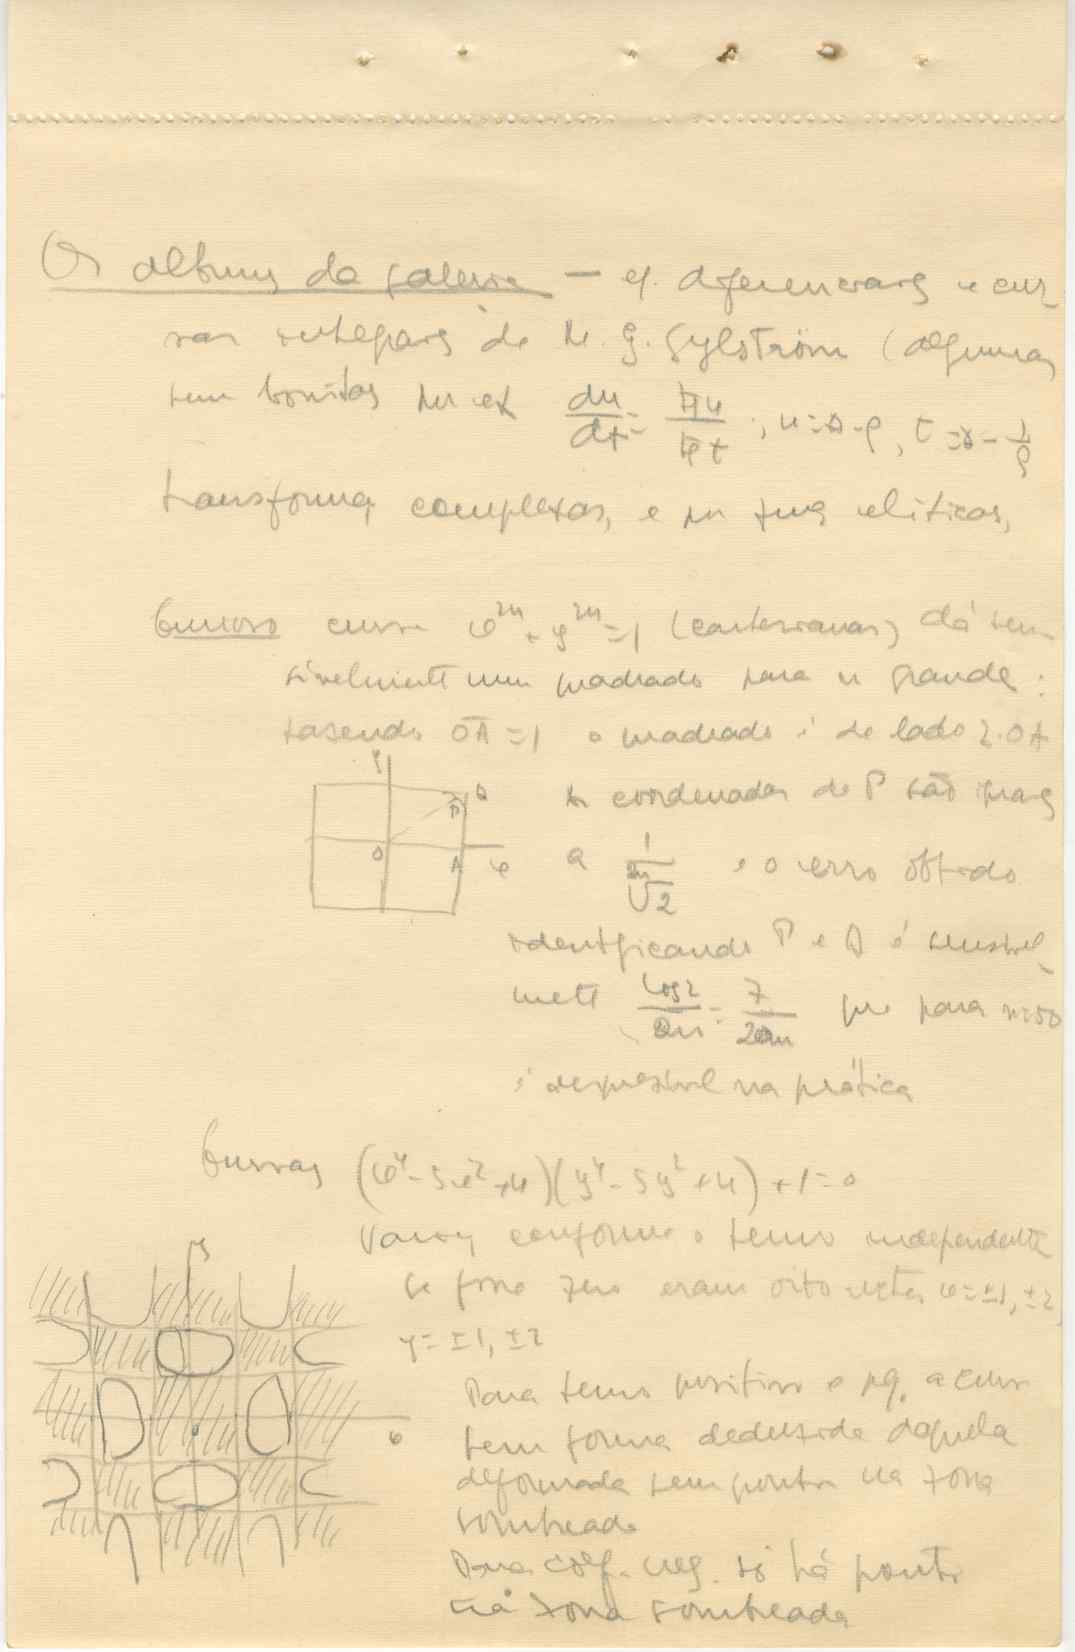 Os albuns da galeria — eq. diferenciais e cur-
vas integrais de N. G. Gylström (algumas
bem bonitas por ex du/dt = ; u = s-ρ, t = s - 1/ρ
transforma complexas, e por
Curioso curva x²ⁿ + y²ⁿ = 1 (cartesianas) dá sen-
sivelmente um quadrado para n grande :
fazendo OA = 1 o quadrado é de lado 2.OA
y
Q
P
O
A
x
As coordenadas de P são iguais
a 1/²ⁿ√2 , o erro obtido
identificando P e Q é sensivel-
mente log2/2n = 7/20n que para n=50
é desprezivel na prática
Curvas (x⁴ - 5x² + 4)(y⁴ - 5y² + 4) + 1 = 0
Variam conforme o termo independente
Se fosse zero eram oito retas x = ±1, ±2,
y = ±1, ±2
y
x
Para termo positivo e pq. a curva
tem forma deduzida daquela
deformada sem pontos na zona
sombreada
Para coef. neg. só há pontos
na zona sombreada